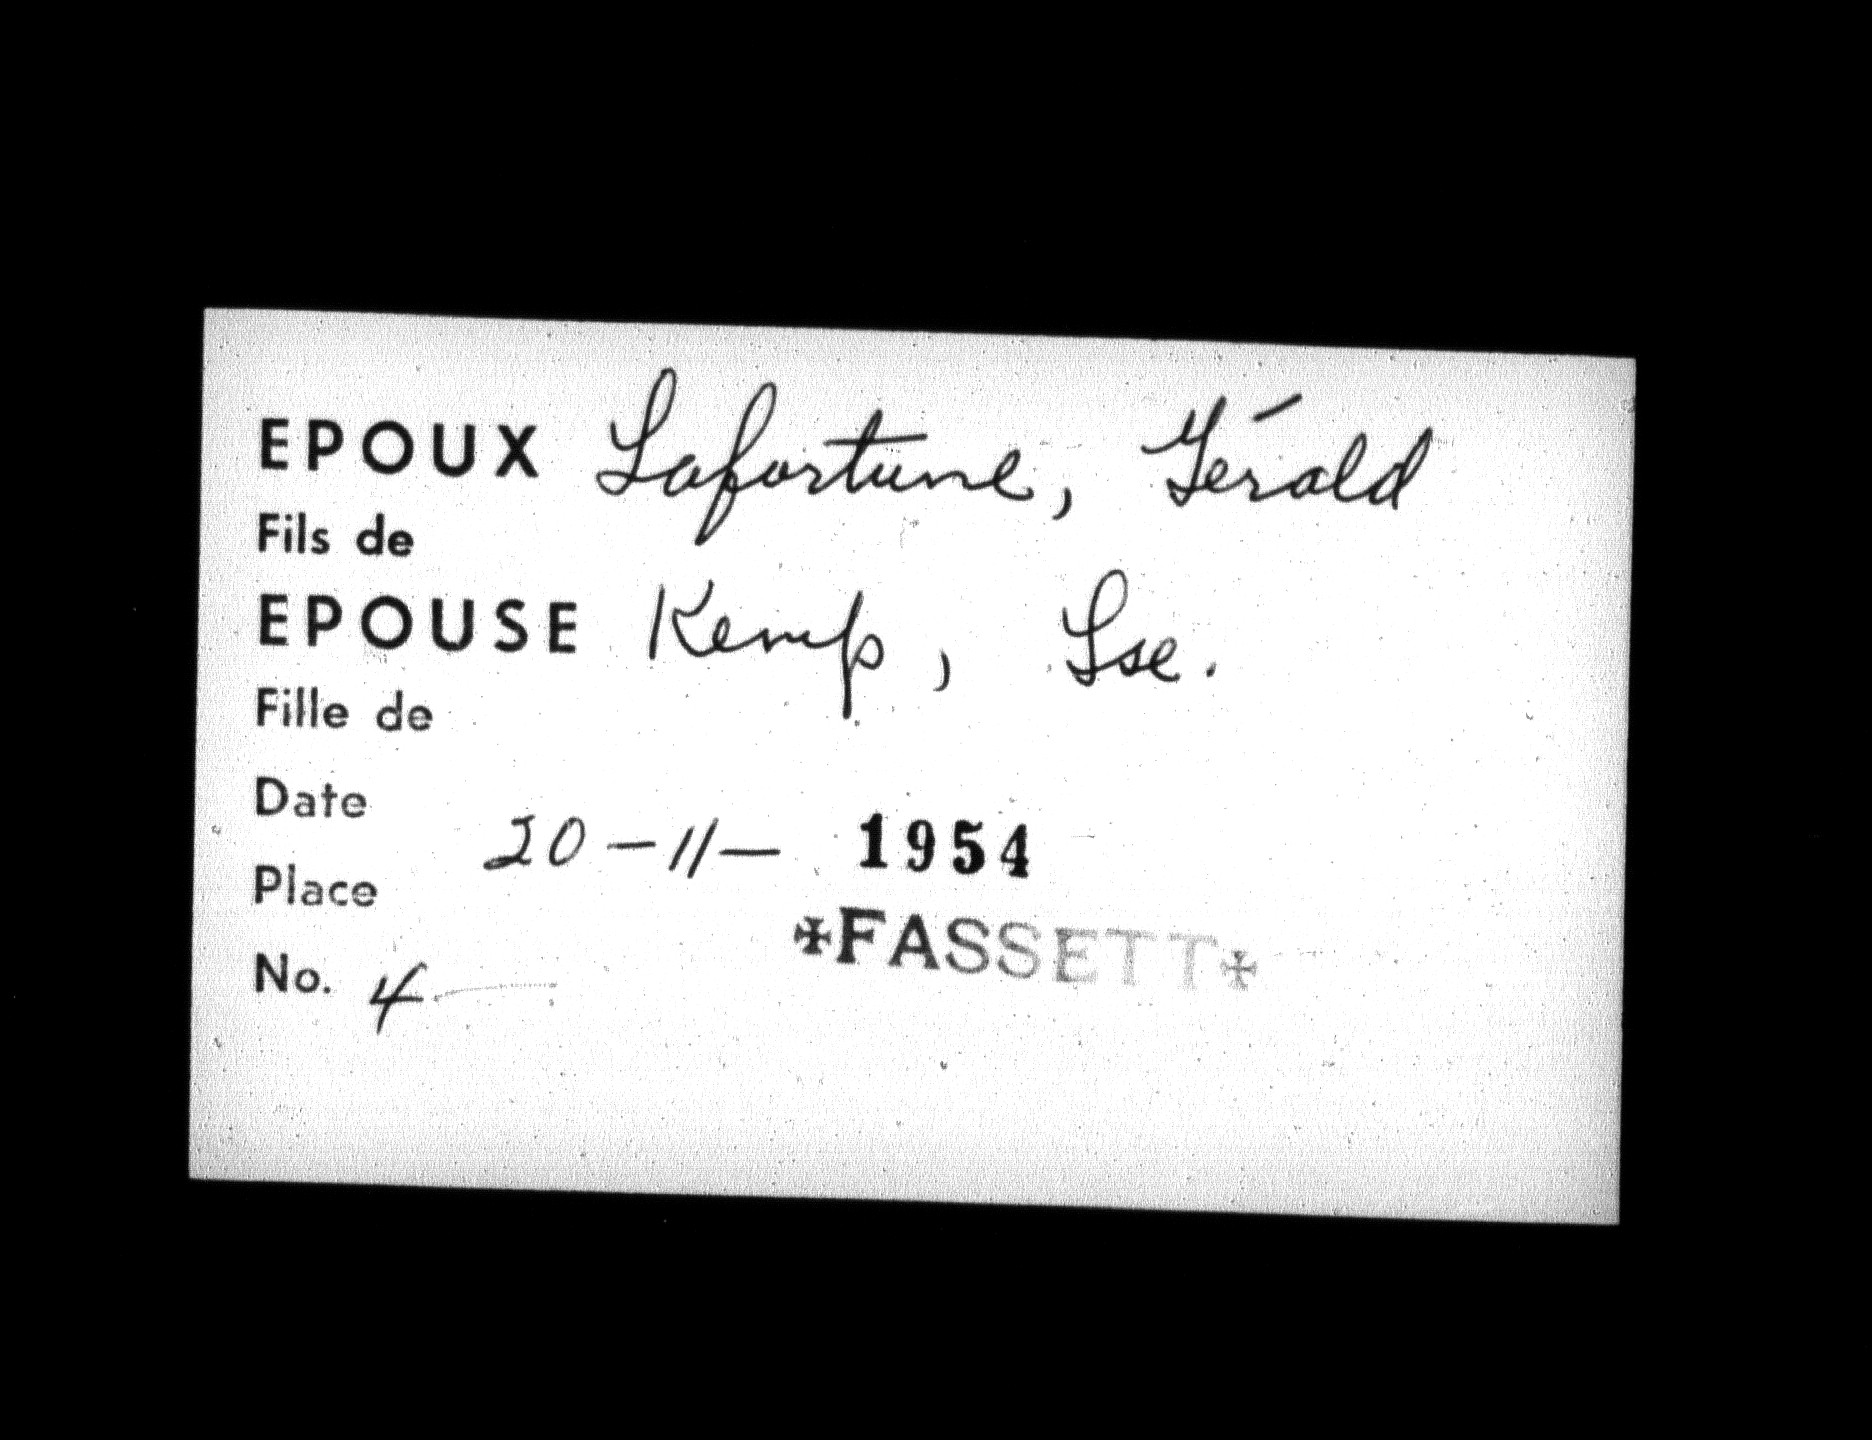 EPOUX Lafortune, Gérald
Fils de
EPOUSE Kemp, Lse.
Fille de
Date
20-11- 1954
Place
✠FASSETT✠
No. 4